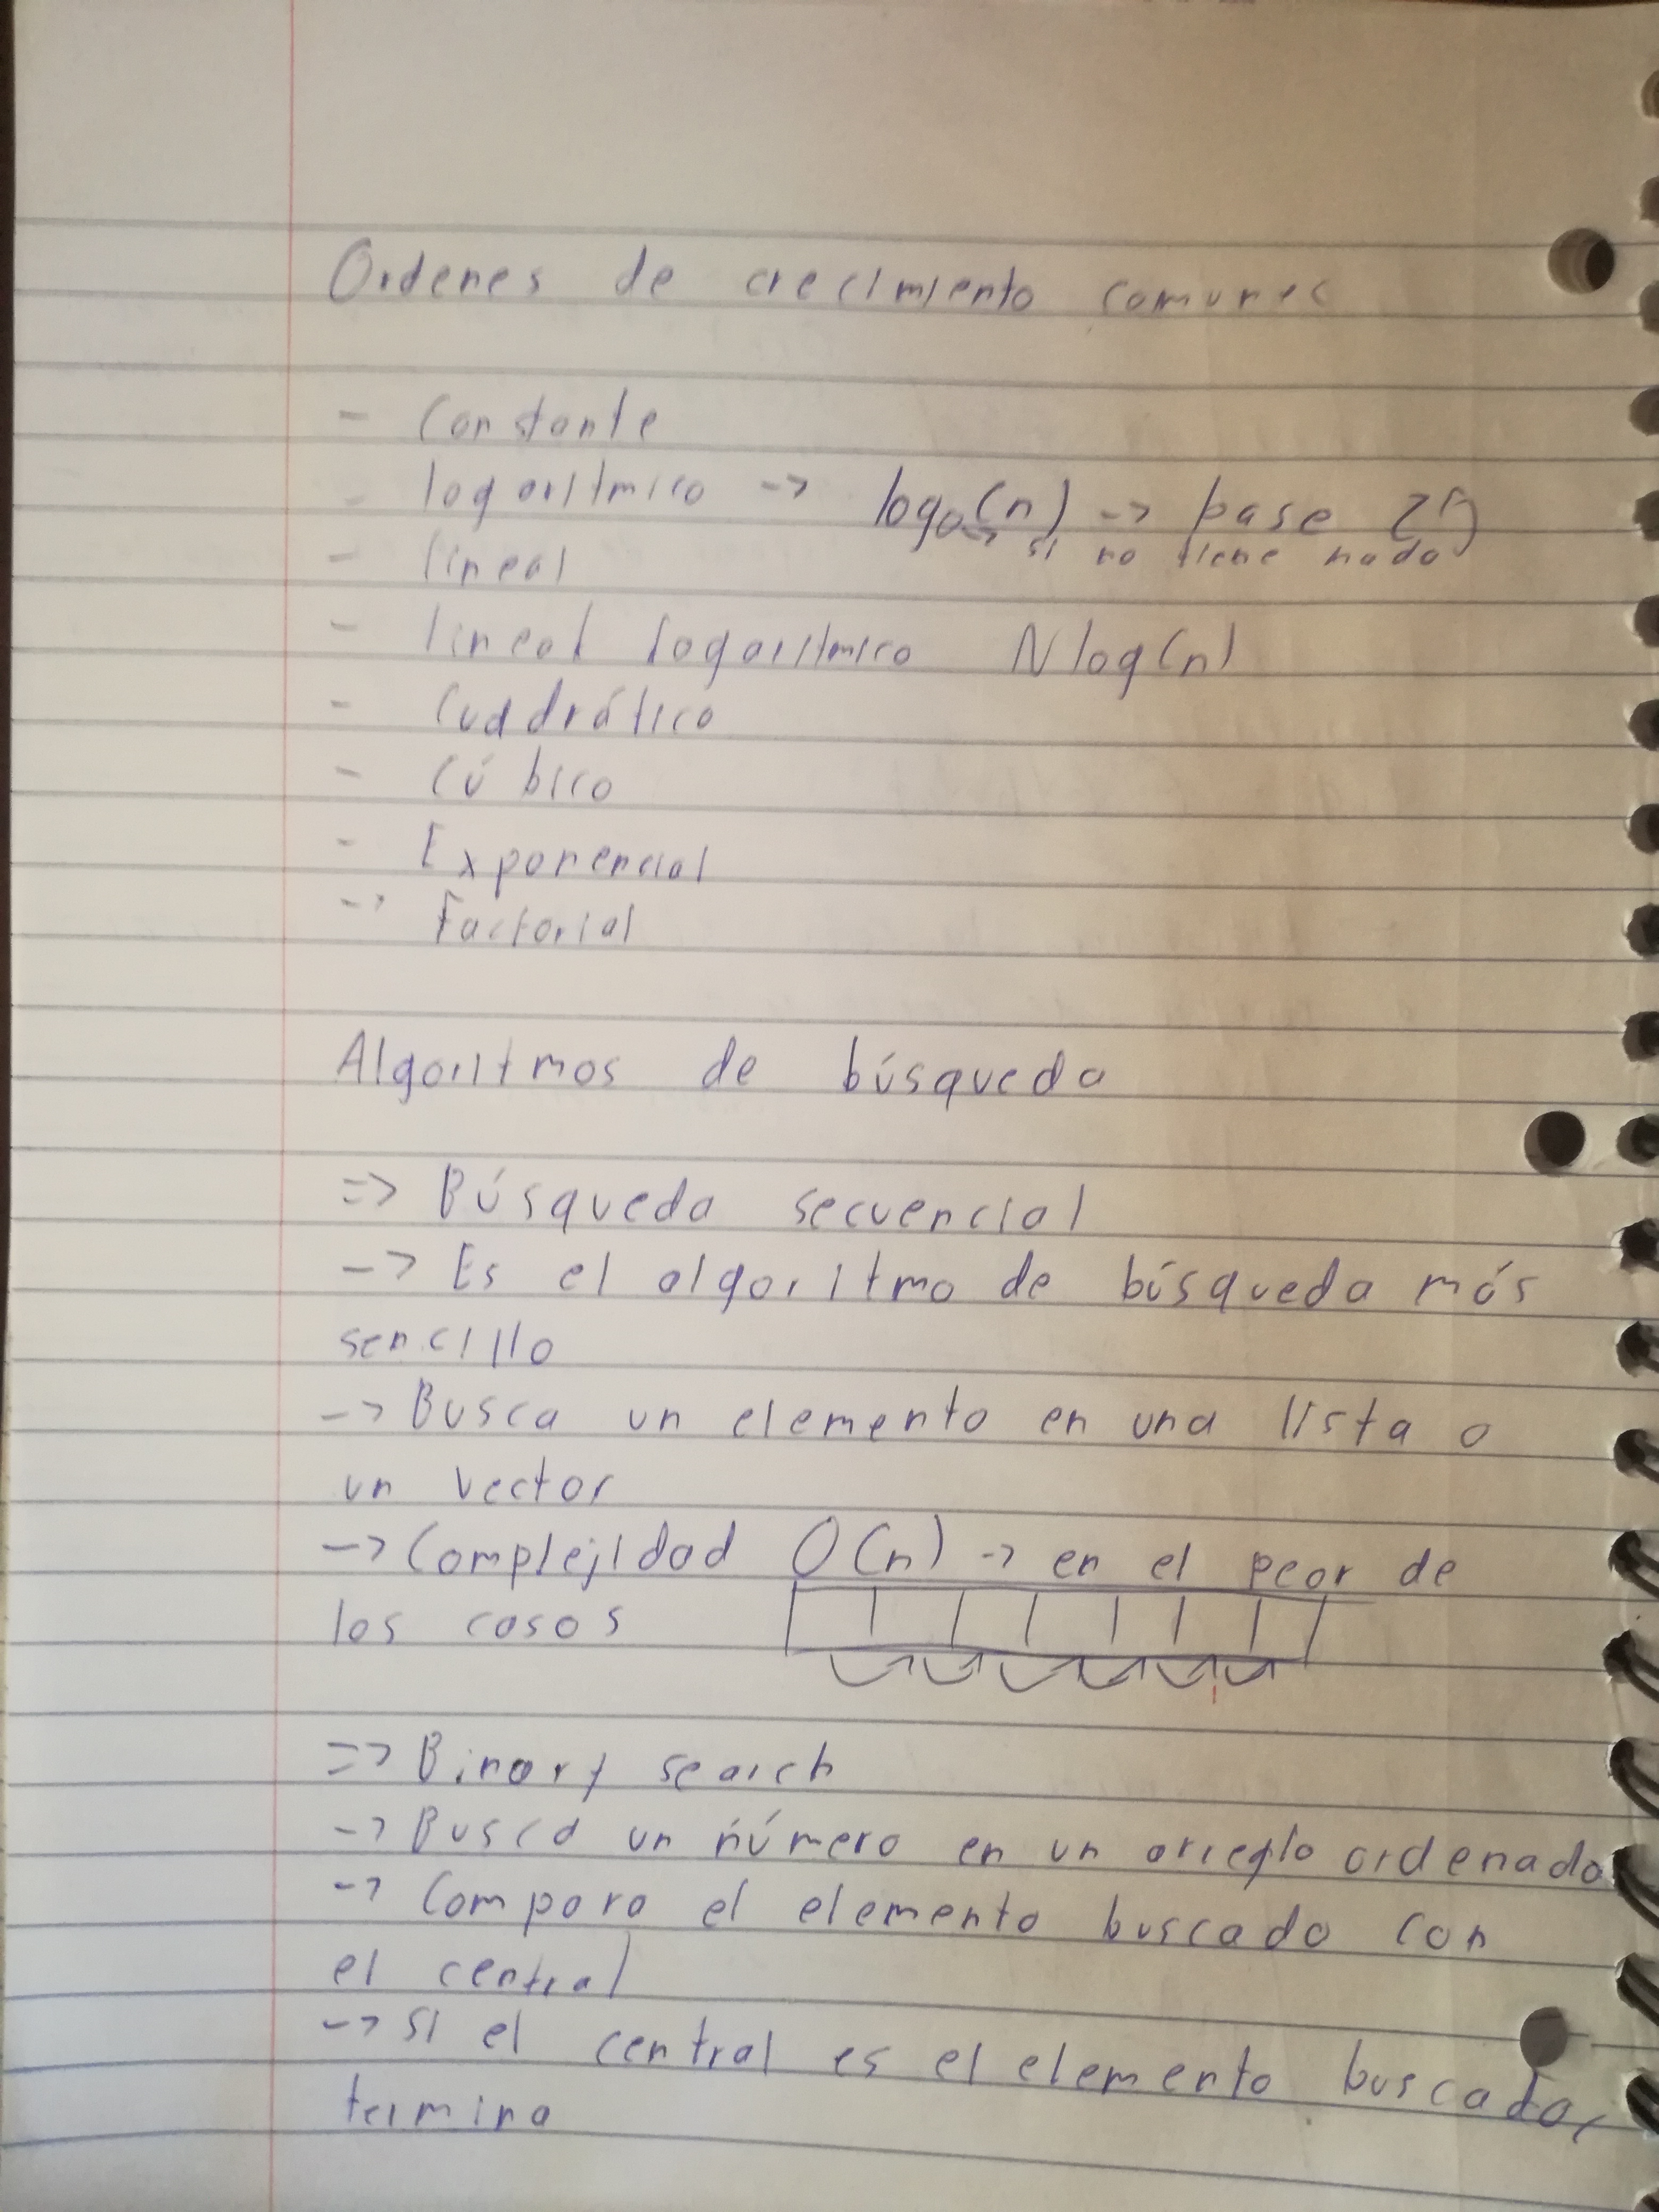 Ordenes de crecimiento comunes
- Constante
- logaritmico -> log₀(n) -> base 2
-> si no tiene nada
- lineal
- lineal logaritmico N log(n)
- Cuadrático
- Cúbico
- Exponencial
- Factorial
Algoritmos de búsqueda
=> Búsqueda secuencial
-> Es el algoritmo de búsqueda más
sencillo
-> Busca un elemento en una lista o
un vector
-> Complejidad O(n) -> en el peor de
los casos
=> Binary search
-> Busca un número en un arreglo ordenado
-> Compara el elemento buscado con
el central
-> Si el central es el elemento buscado,
termina